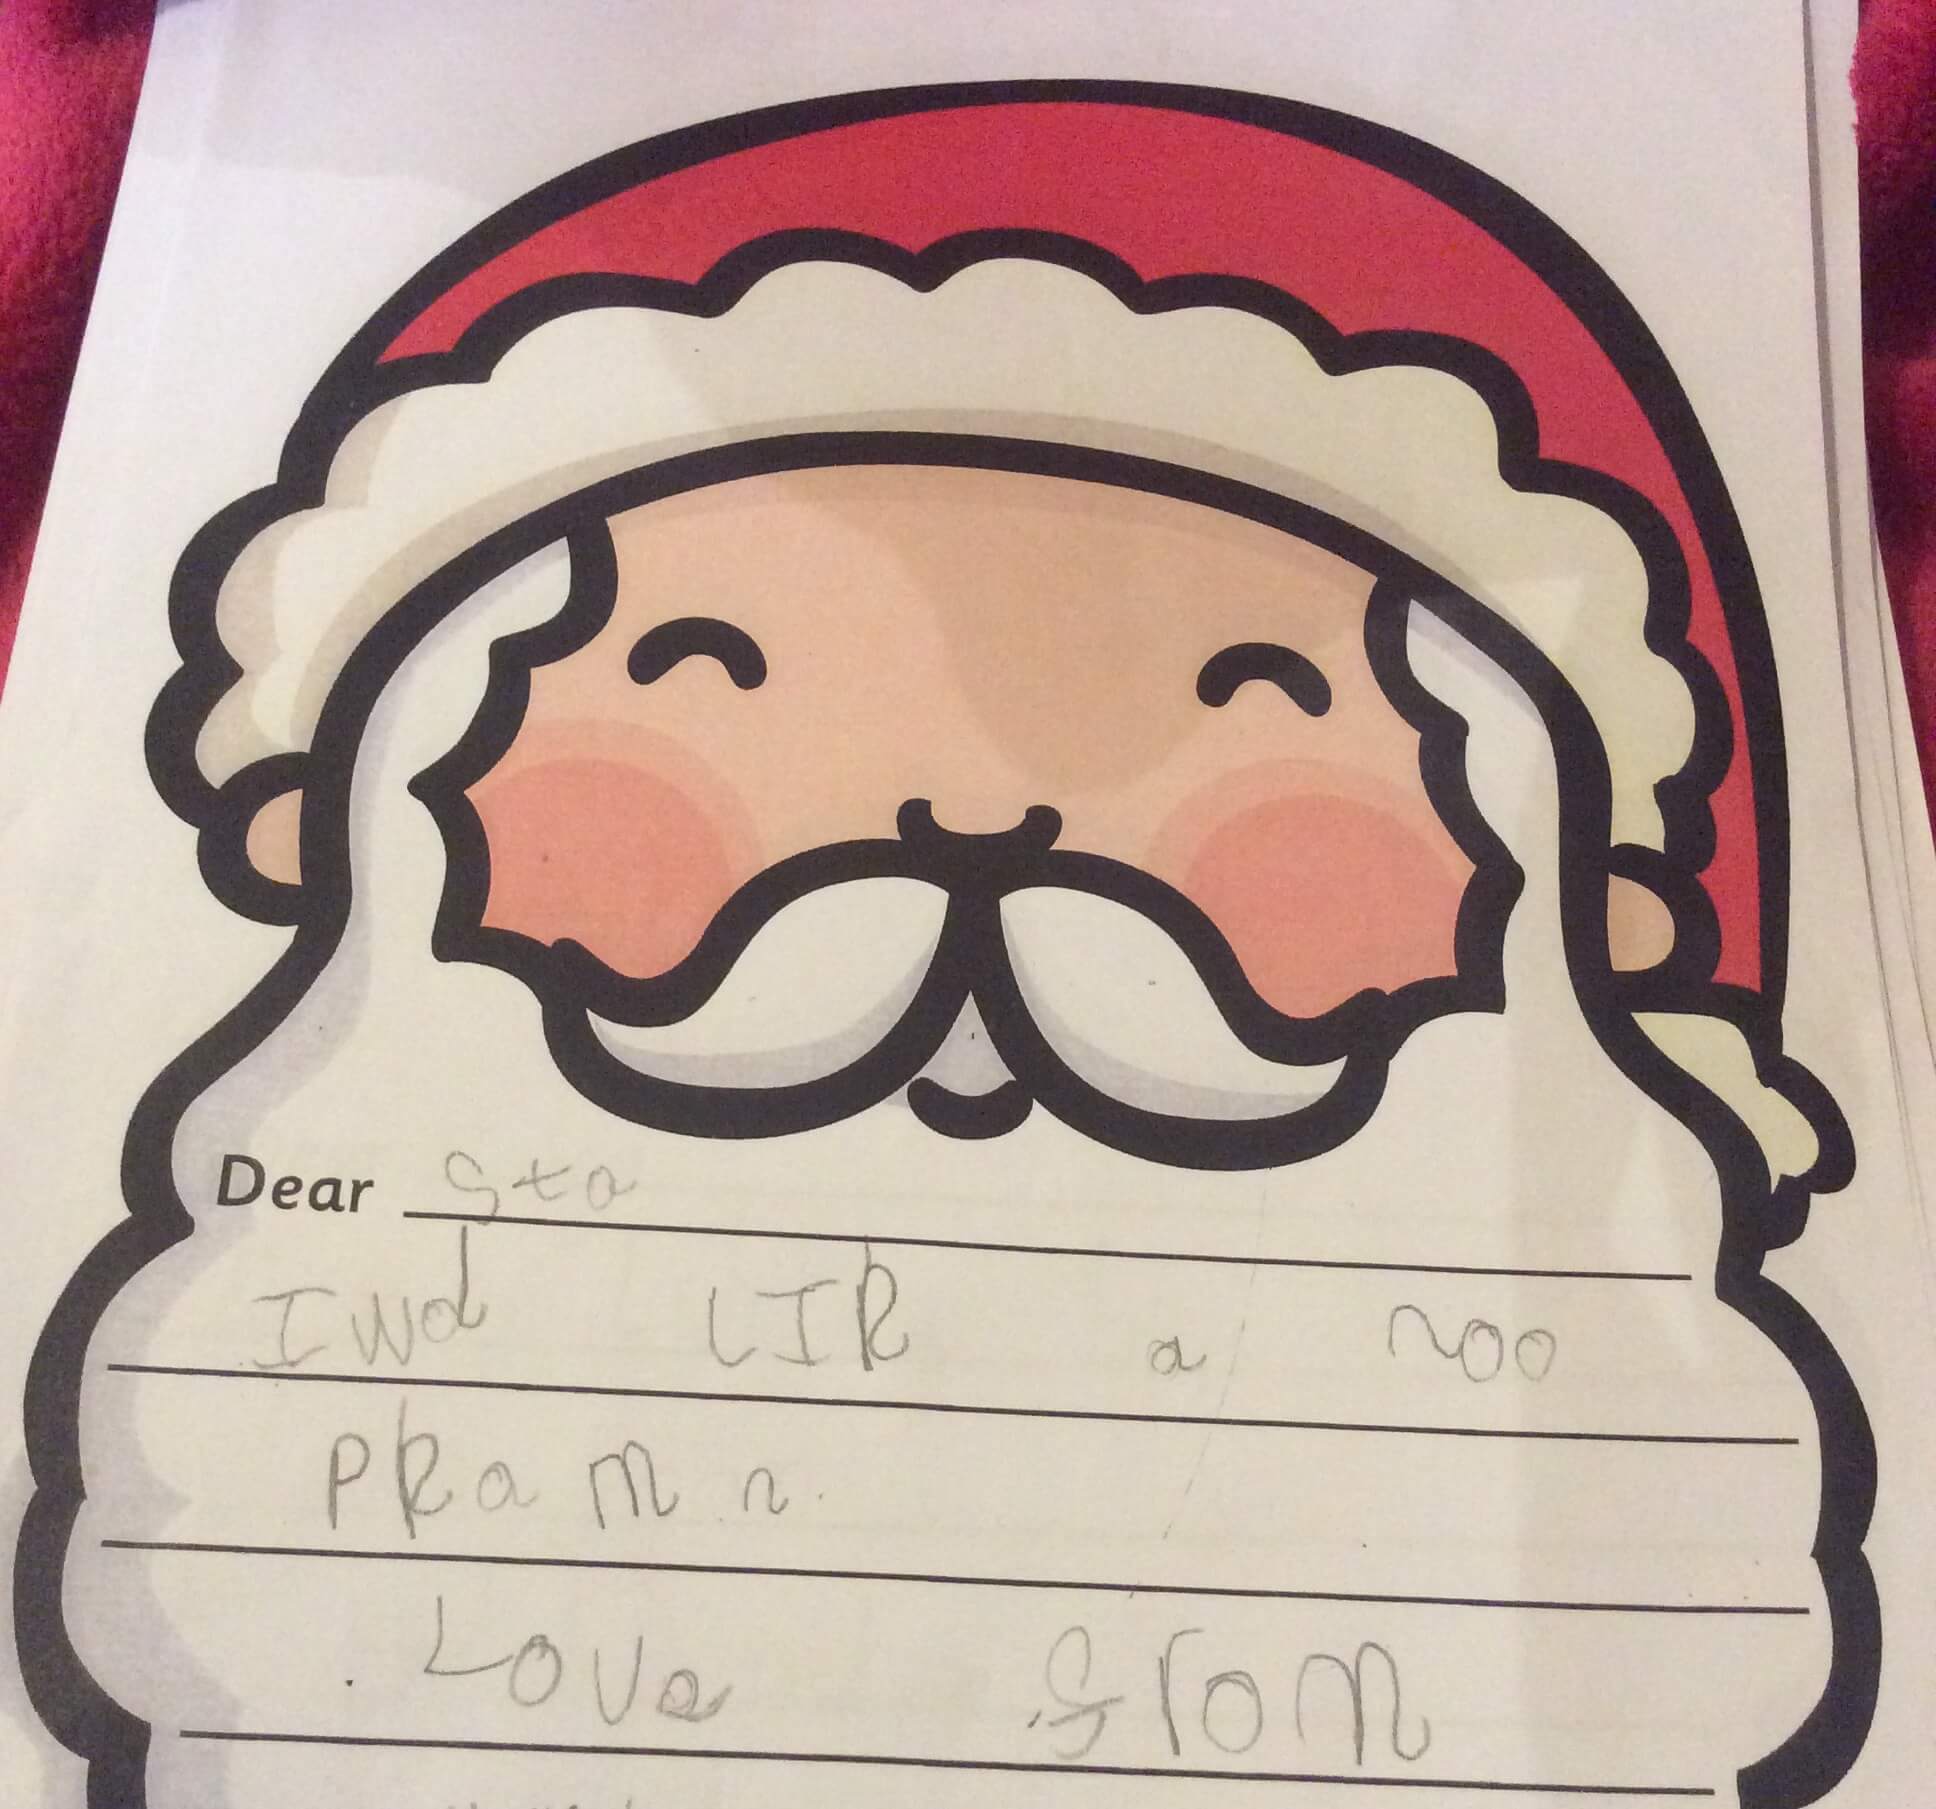 Dear Sta
I wd LIk a noo
Pkamn.
Love from